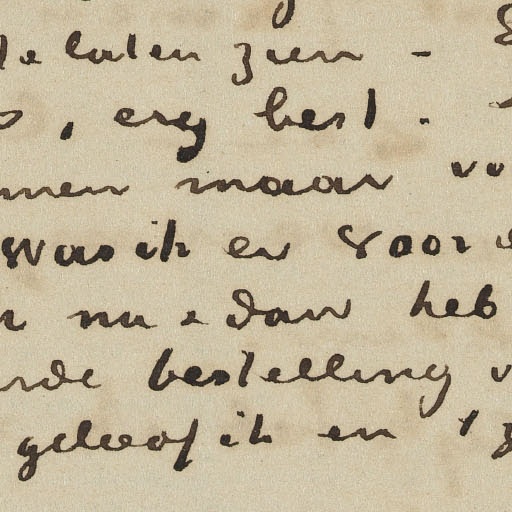 te laten zien -
, erg best.
maar
was ik er voor
nu & dan heb
bestelling
geloof ik en 't